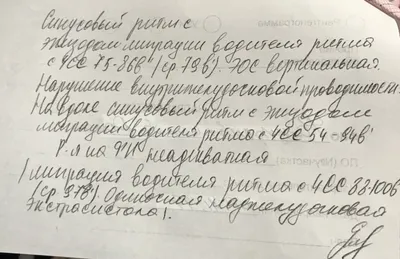 Синусовый ритм с
эпизодом миграции водителя ритма
с ЧСС 75-86в' (ср 79в'). ЭОС вертикальная.
Нарушение внутрижелудочковой проводимости.
На вдохе синусовый ритм с эпизодом
миграции водителя ритма с ЧСС 54-94в'
Р-я на ФН неадекватная
/ миграция водителя ритма с ЧСС 83-100в'
(ср 97в'). Одиночная наджелудочковая
экстрасистола/.